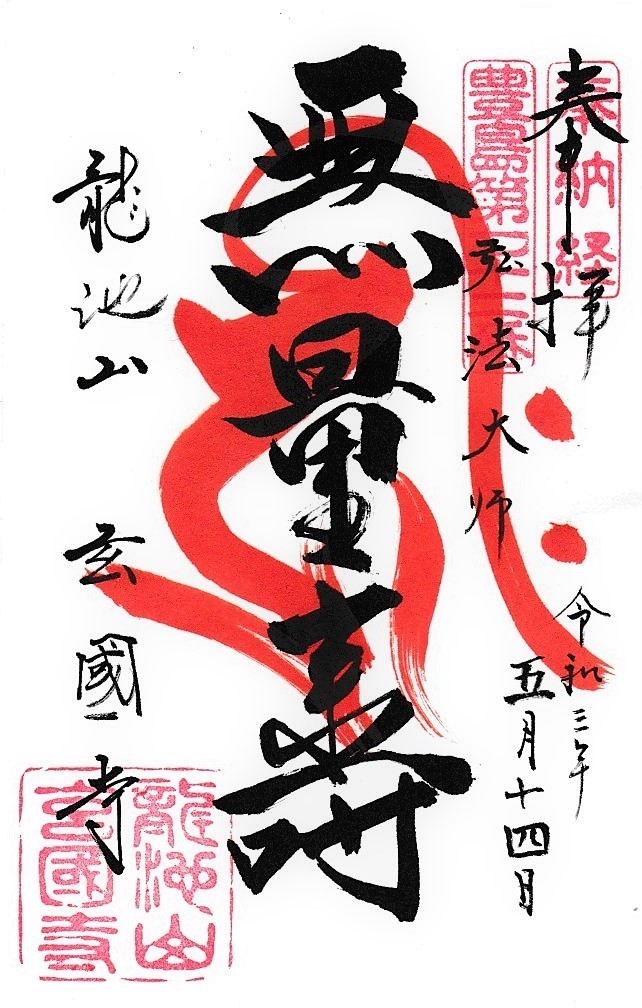 奉拝
奉納経
弘法大师
豊島第
令和三年
五月十四日
無量寿
龍池山 玄國寺
龍池山
玄國寺